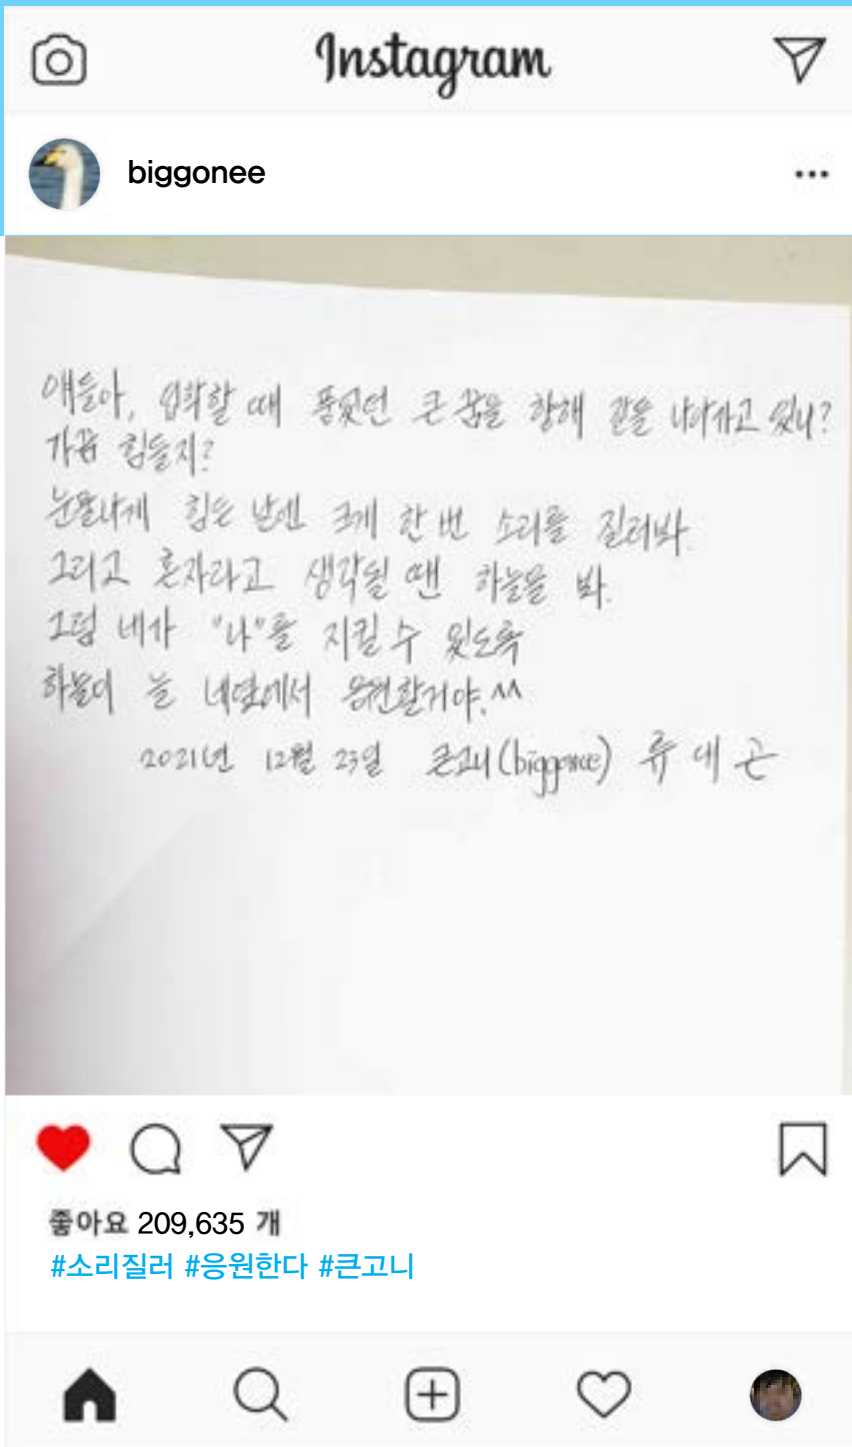 Instagram
biggonee
얘들아, 입학할 때 품었던 큰 꿈을 향해 같을 나아가고 있니?
가끔 힘들지?
눈물나게 힘든 날엔 크게 한 번 소리를 질러봐.
그리고 혼자라고 생각될 땐 하늘을 봐.
그럼 네가 "나"를 지킬 수 있도록
하늘이 늘 네옆에서 응원할거야.^^
2021년 12월 23일 큰고니(biggonee) 류대곤
좋아요 209,635 개
#소리질러 #응원한다 #큰고니